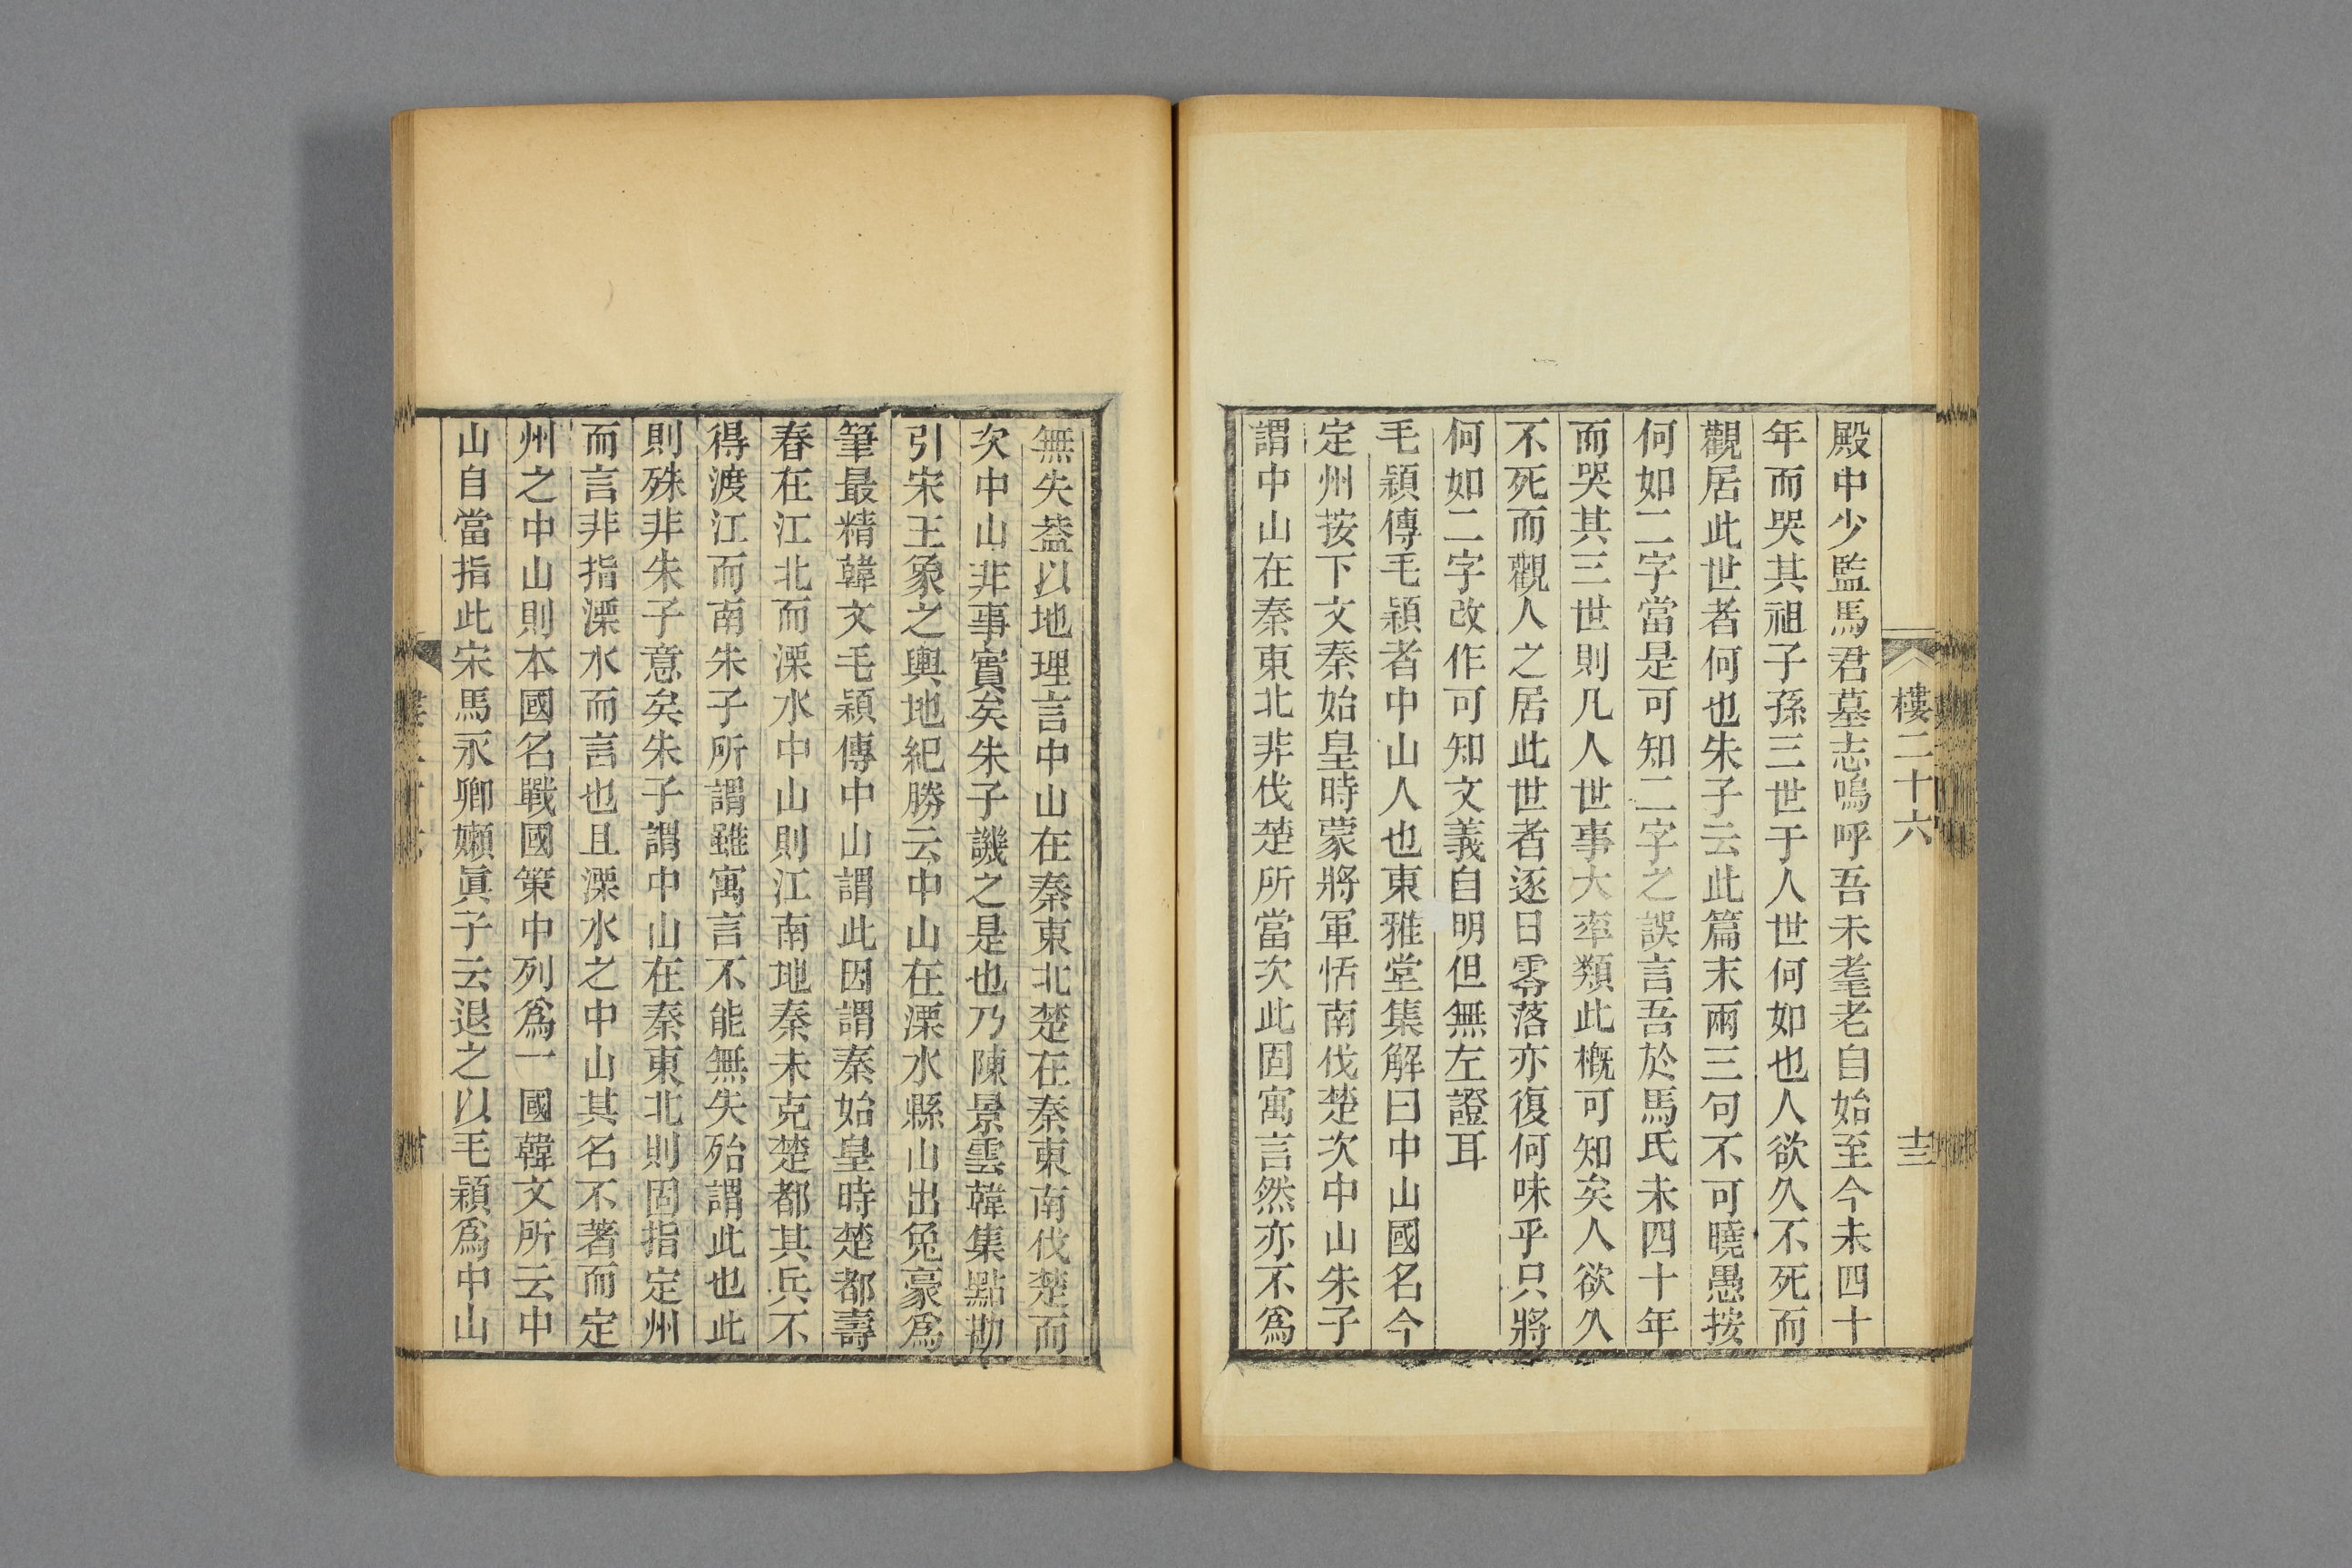 樓二十六
十三
殿中少監馬君墓志嗚呼吾未耄老自始至今未四十
年而哭其祖子孫三世于人世何如也人欲久不死而
觀居此世者何也朱子云此篇末兩三句不可曉愚按
何如二字當是可知二字之誤言吾於馬氏未四十年
而哭其三世則凡人世事大率類此槪可知矣人欲久
不死而觀人之居此世者逐日零落亦復何味乎只將
何如二字改作可知文義自明但無左證耳
毛穎傳毛穎者中山人也東雅堂集解曰中山國名今
定州按下文秦始皇時蒙將軍恬南伐楚次中山朱子
謂中山在秦東北非伐楚所當次此固寓言然亦不爲
無失葢以地理言中山在秦東北楚在秦東南伐楚而
次中山非事實矣朱子譏之是也乃陳景雲韓集點勘
引宋王象之輿地紀勝云中山在溧水縣山出兔豪爲
筆最精韓文毛穎傳中山謂此因謂秦始皇時楚都壽
春在江北而溧水中山則江南地秦未克楚都其兵不
得渡江而南朱子所謂雖寓言不能無失殆謂此也此
則殊非朱子意矣朱子謂中山在秦東北則固指定州
而言非指溧水而言也且溧水之中山其名不著而定
州之中山則本國名戰國策中列爲一國韓文所云中
山自當指此宋馬永卿嬾眞子云退之以毛穎爲中山